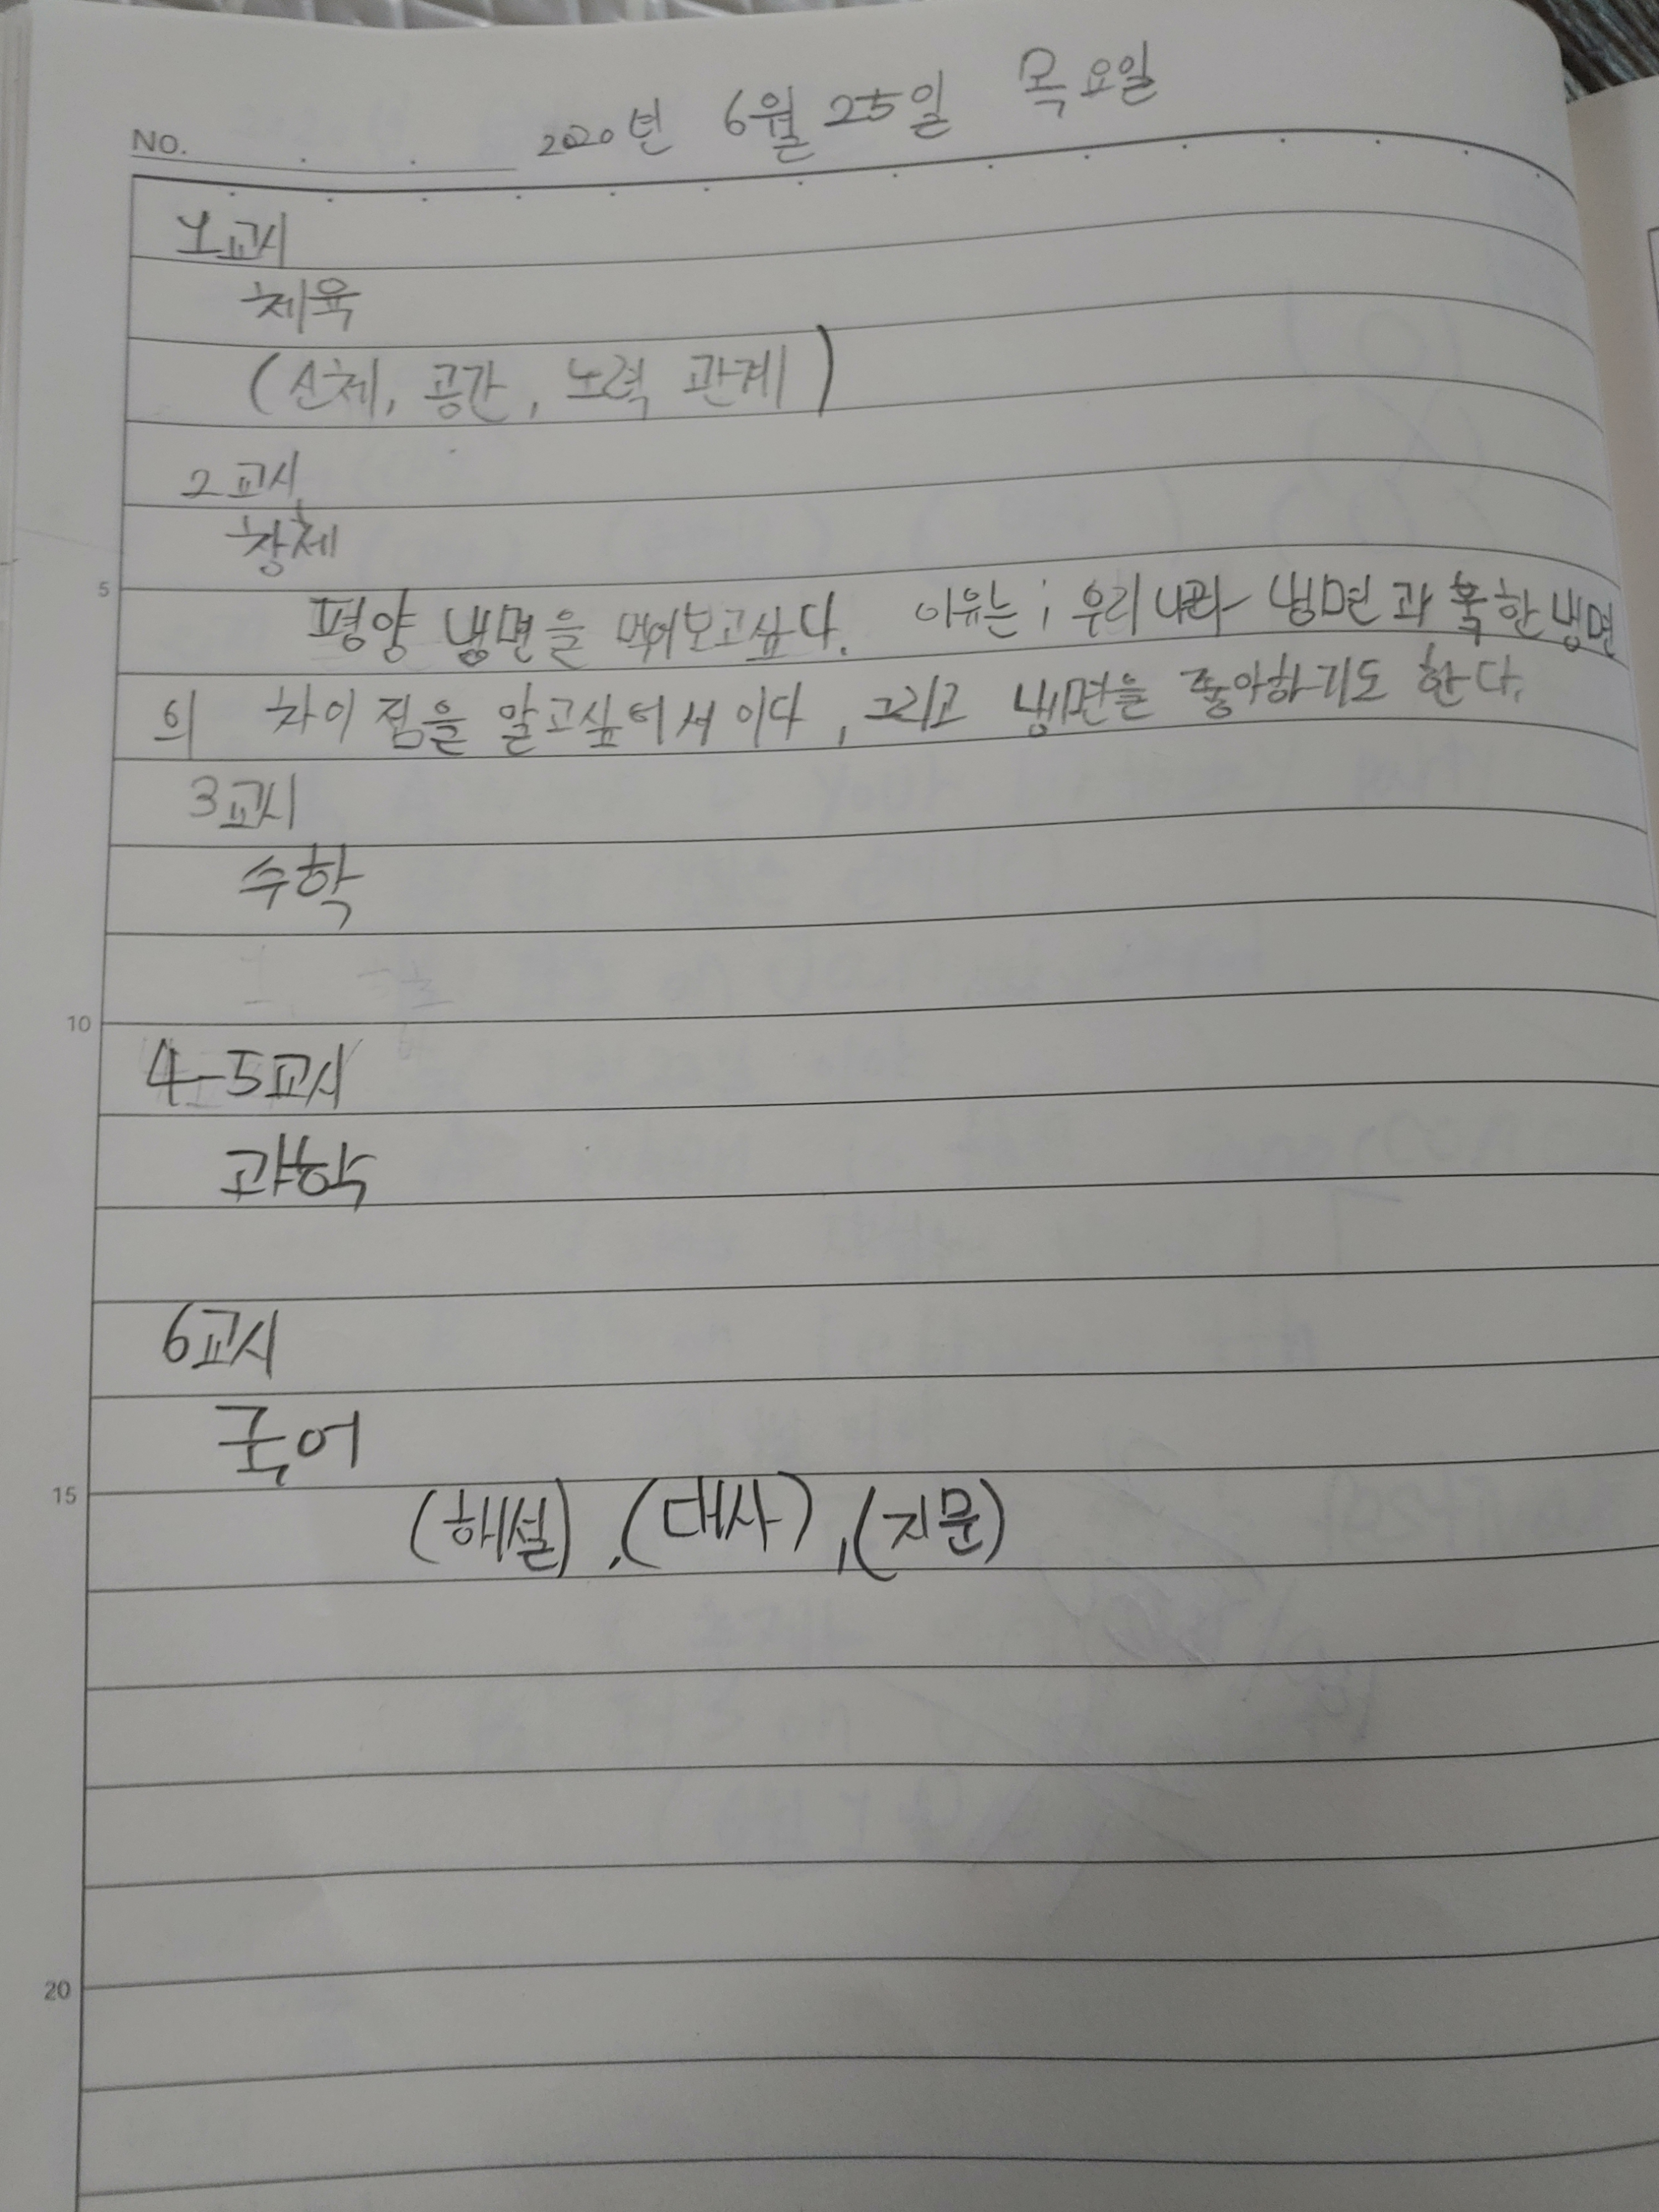 NO.
2020년 6월 25일 목요일
1교시
체육
(신체, 공간, 노력 관계)
2교시
창체
5
평양 냉면을 먹어보고싶다. 이유는; 우리나라 냉면과 북한냉면
의 차이점을 알고싶어서이다, 그리고 냉면을 좋아하기도 한다.
3교시
수학
10
4-5교시
과학
6교시
국어
15
(해설), (대사), (지문)
20